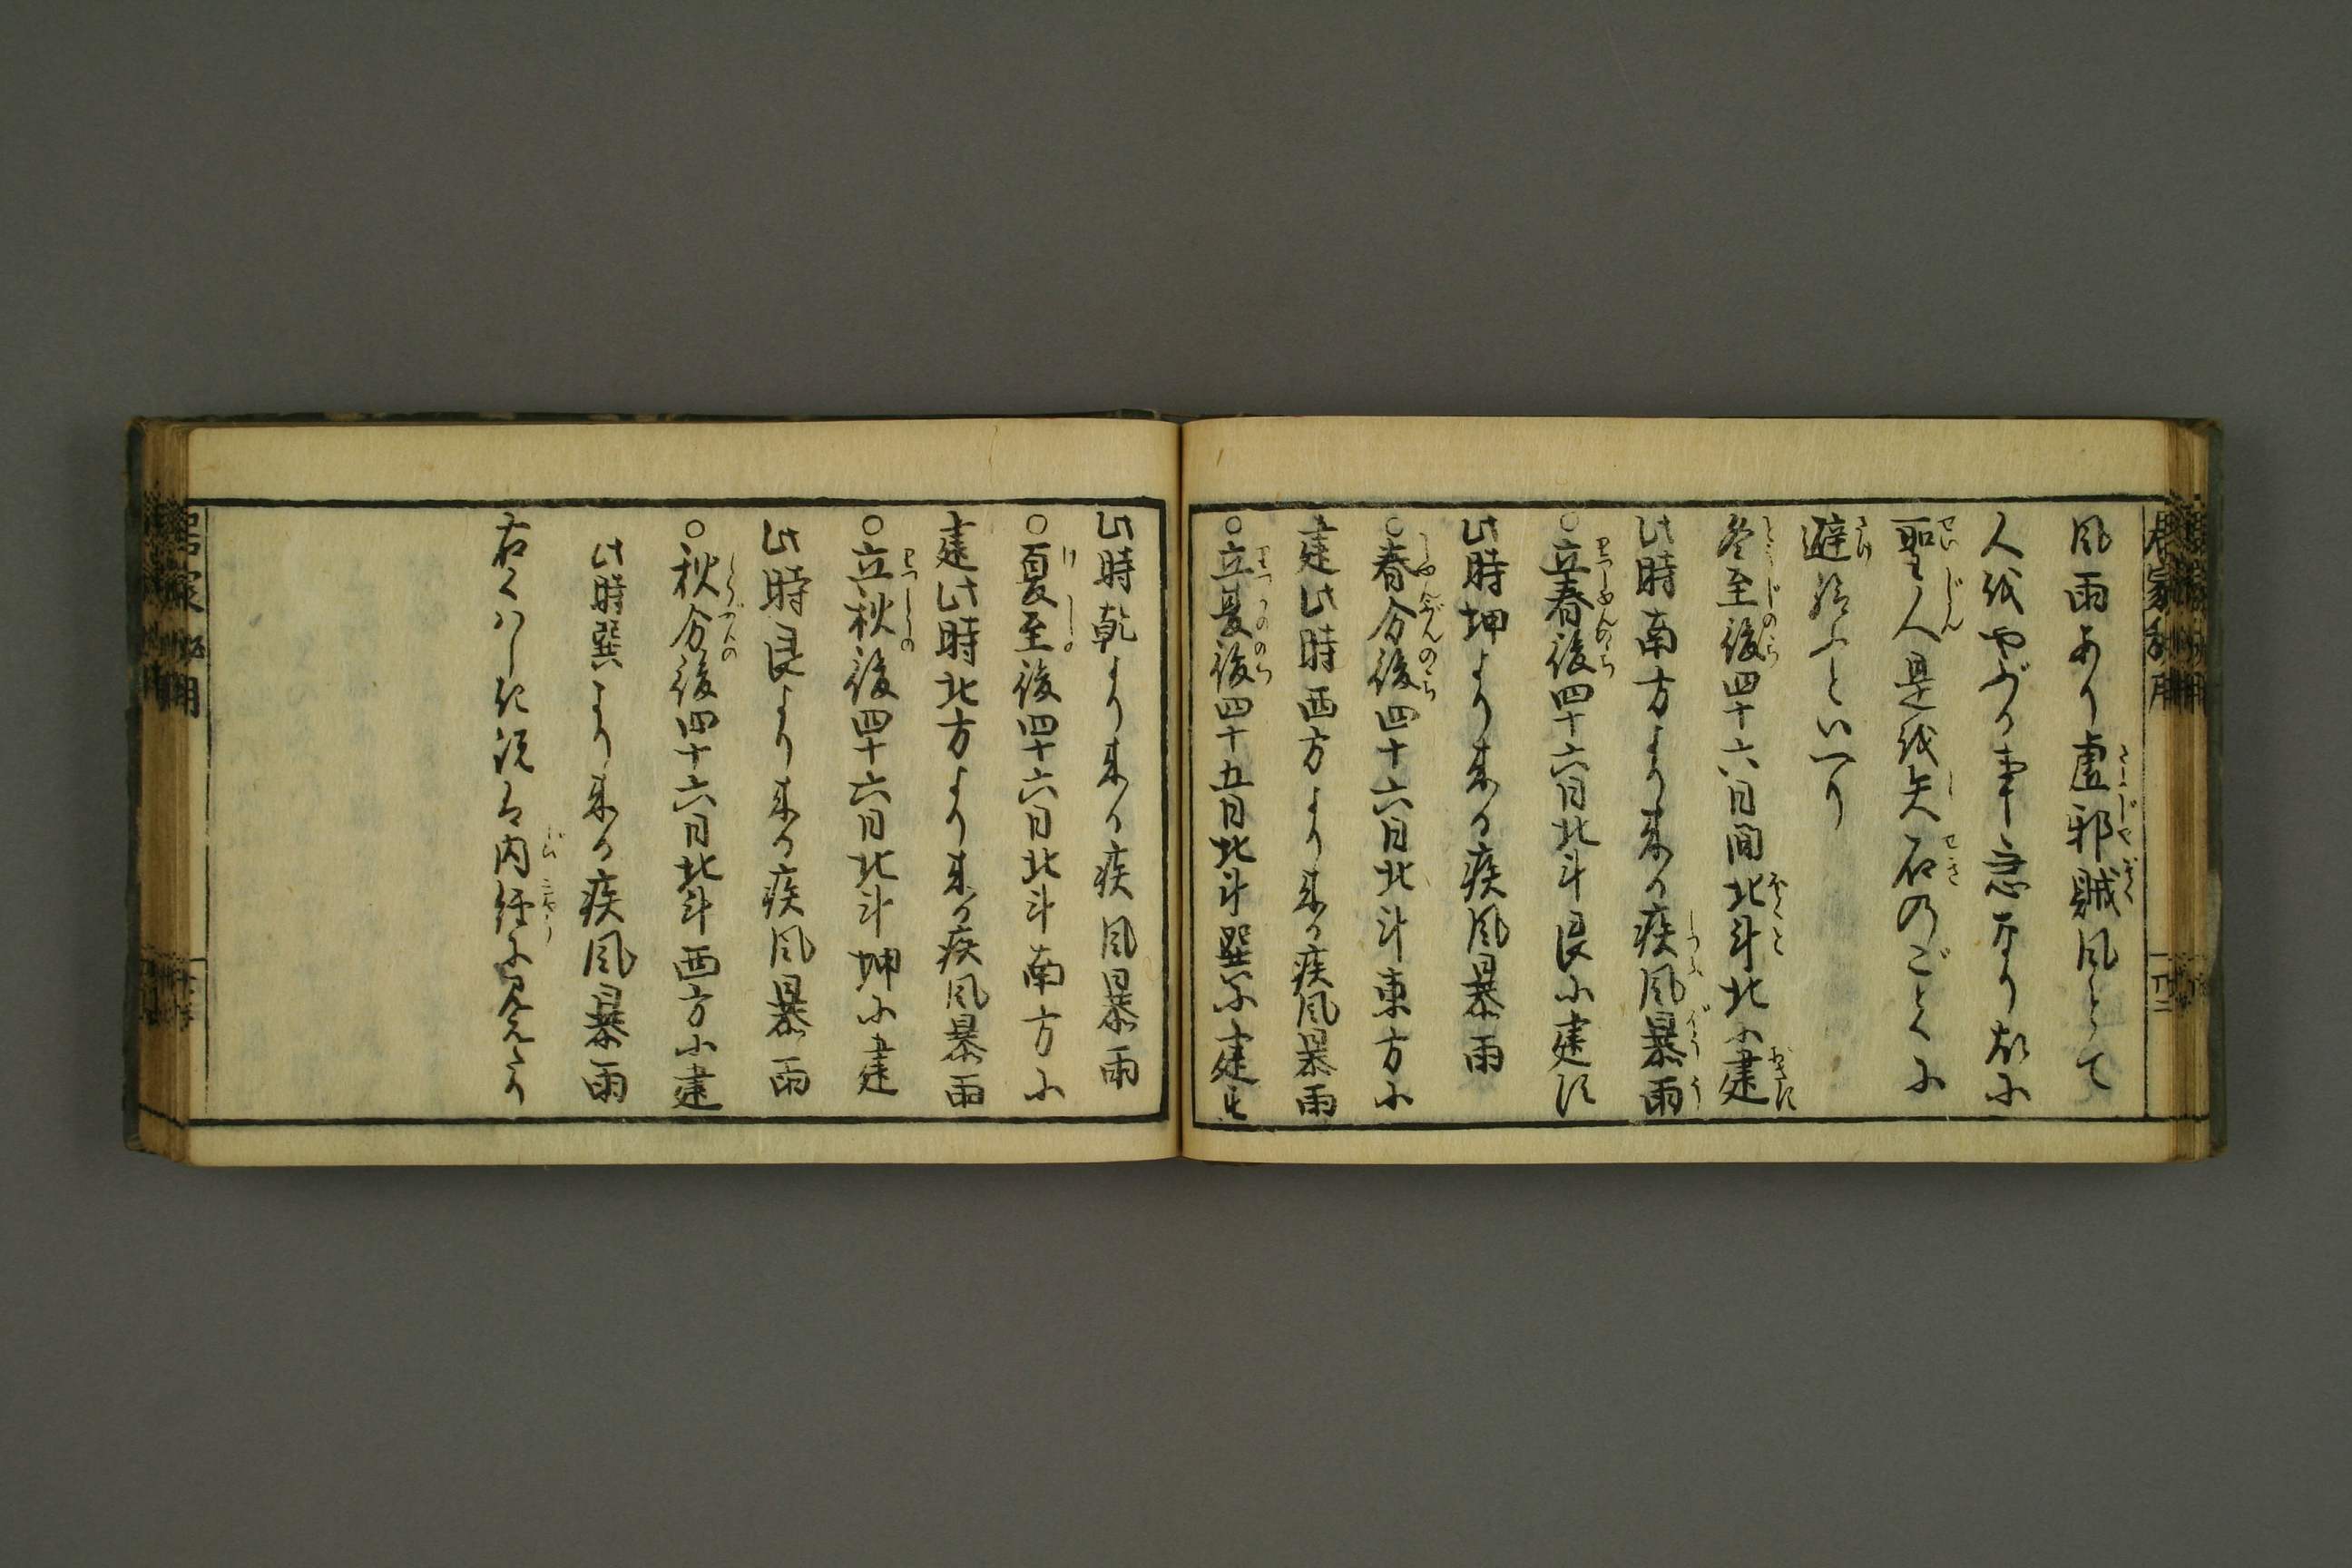 風雨あり虚邪賊風とて
人をやぶる事急なり故に
聖人是を矢石のごとくに
避給ふといへり
冬至後四十六日間北斗北に建
此時南方より来る疾風暴雨
○立春後四十六日北斗艮に建す
此時坤より来る疾風暴雨
○春分後四十六日北斗東方に
建此時西方より来る疾風暴雨
○立夏後四十五日北斗巽に建す
此時乾より来る疾風暴雨
○夏至後四十六日北斗南方に
建此時北方より来る疾風暴雨
○立秋後四十六日北斗坤に建
此時艮より来る疾風暴雨
○秋分後四十六日北斗西方に建
此時巽より来る疾風暴雨
右くはしき説は内経に見えたり